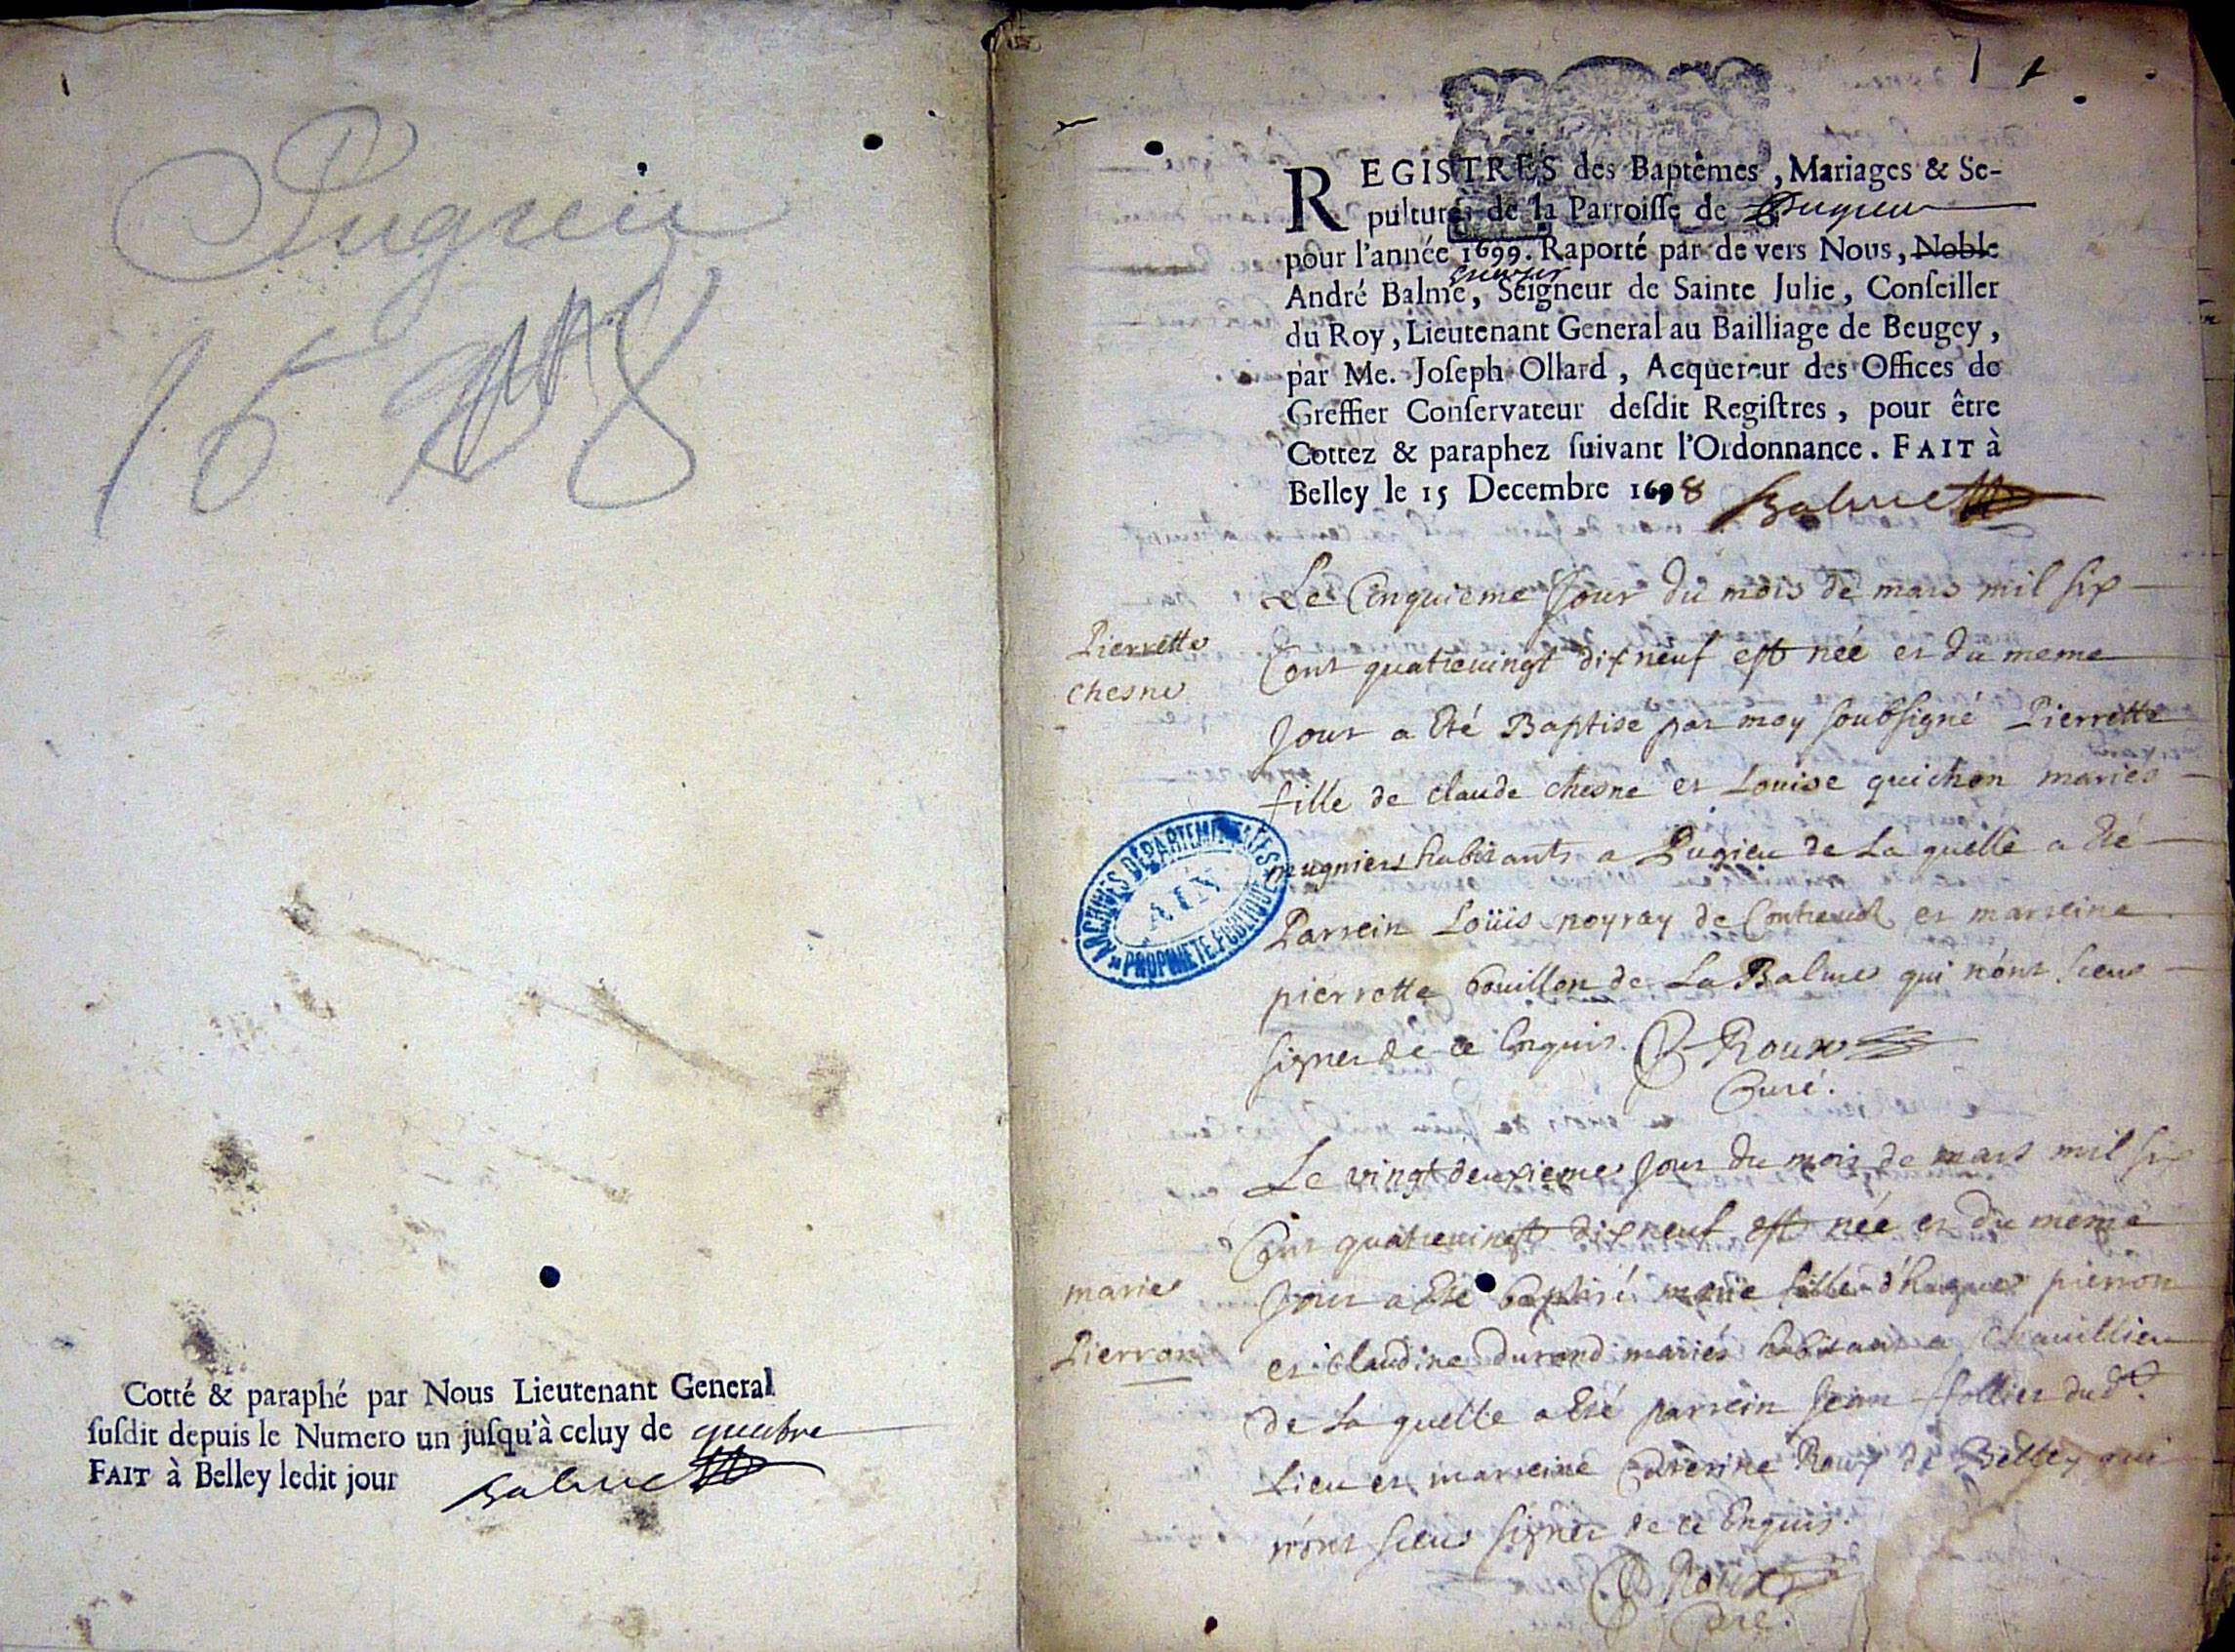 Pugieu
16 8
Cotté & paraphé par Nous Lieutenant General
ſuſdit depuis le Numero un juſqu'à celuy de quatre
FAIT à Belley ledit jour
Balme
1
REGISTRES des Baptêmes, Mariages & Se-
pultures de la Parroiſſe de Pugieu
pour l'année 1699. Raporté par de vers Nous, Noble
André Balme, Seigneur de Sainte Julie, Conſeiller
du Roy, Lieutenant General au Bailliage de Beugey,
par Me. Joſeph Ollard, Acquereur des Offices de
Greffier Conſervateur deſdit Regiſtres, pour être
Cottez & paraphez ſuivant l'Ordonnance. FAIT à
Belley le 15 Decembre 1698
Balme
Pierrette
chesne
Le Cinquieme Jour du mois de mars mil six
Cent quatrevingt dixneuf est née et du meme
Jour a Eté Baptise par moy soubsigné Pierrette
fille de claude chesne et Louise guichon mariés
mugniers habitants a Pugieu de La quelle a Eté
Parrein Loüis noyray de et marreine
pierrette bouillon de La Balme qui n'ont sceus
signer de ce Enquis. Roux
Curé.
marie
Pierron
Le vingtdeuxieme Jour du mois de mars mil six
Cent quatrevingt dixneuf est née et du meme
Jour a Eté baptisé marie fille d'hugues pierron
et claudine durand mariés habitants a Chavillieu
de La quelle a Eté parrein Jean follier dudt.
Lieu et marreine Caterine Roux de Belley qui
n'ont sceus signer de ce Enquis.
Roux
Curé.
ARCHIVES DÉPARTEMENTALES
AIN
PROPRIÉTÉ PUBLIQUE